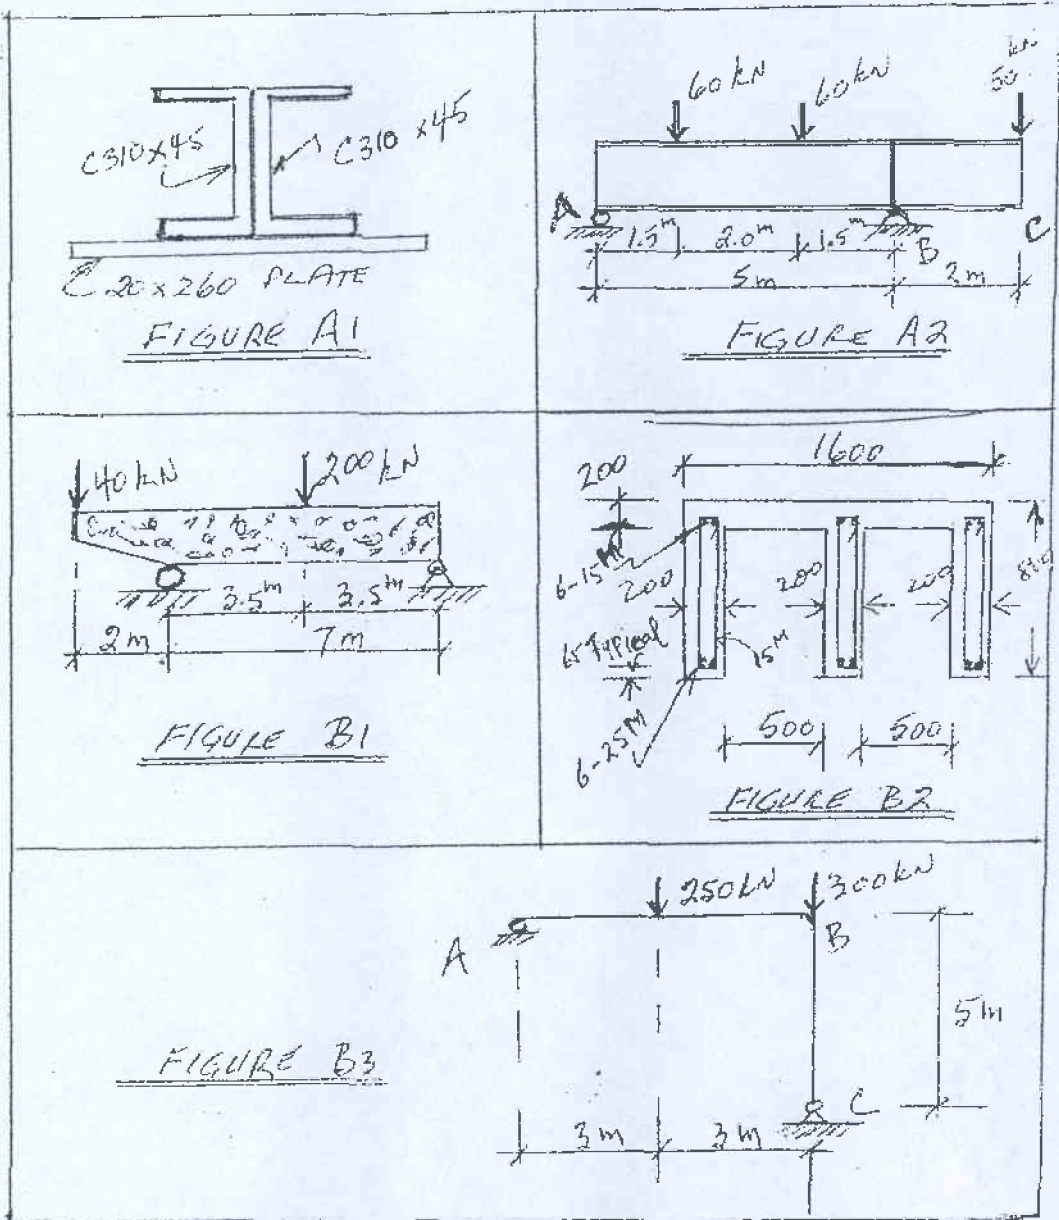 C310x45
C310 x45
20x260 PLATE
FIGURE A1
60 kN
60 kN
50 kN
A
B
C
1.5m
2.0m
1.5m
5m
2m
FIGURE A2
40 kN
200 kN
3.5m
3.5m
2m
7m
FIGURE B1
1600
200
6-15M
200
200
200
65 Typical
15M
6-25M
500
500
FIGURE B2
250kN
300kN
A
B
5m
C
3m
3m
FIGURE B3